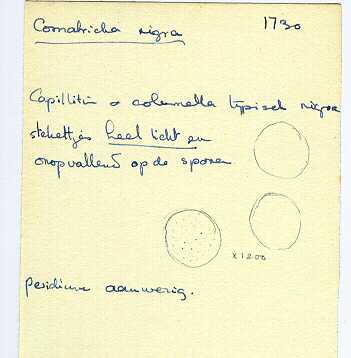 Comatricha nigra 1730
Capillitium & columella typisch nigra
stekeltjes heel licht en
onopvallend op de sporen
x 1200
peridium aanwezig.